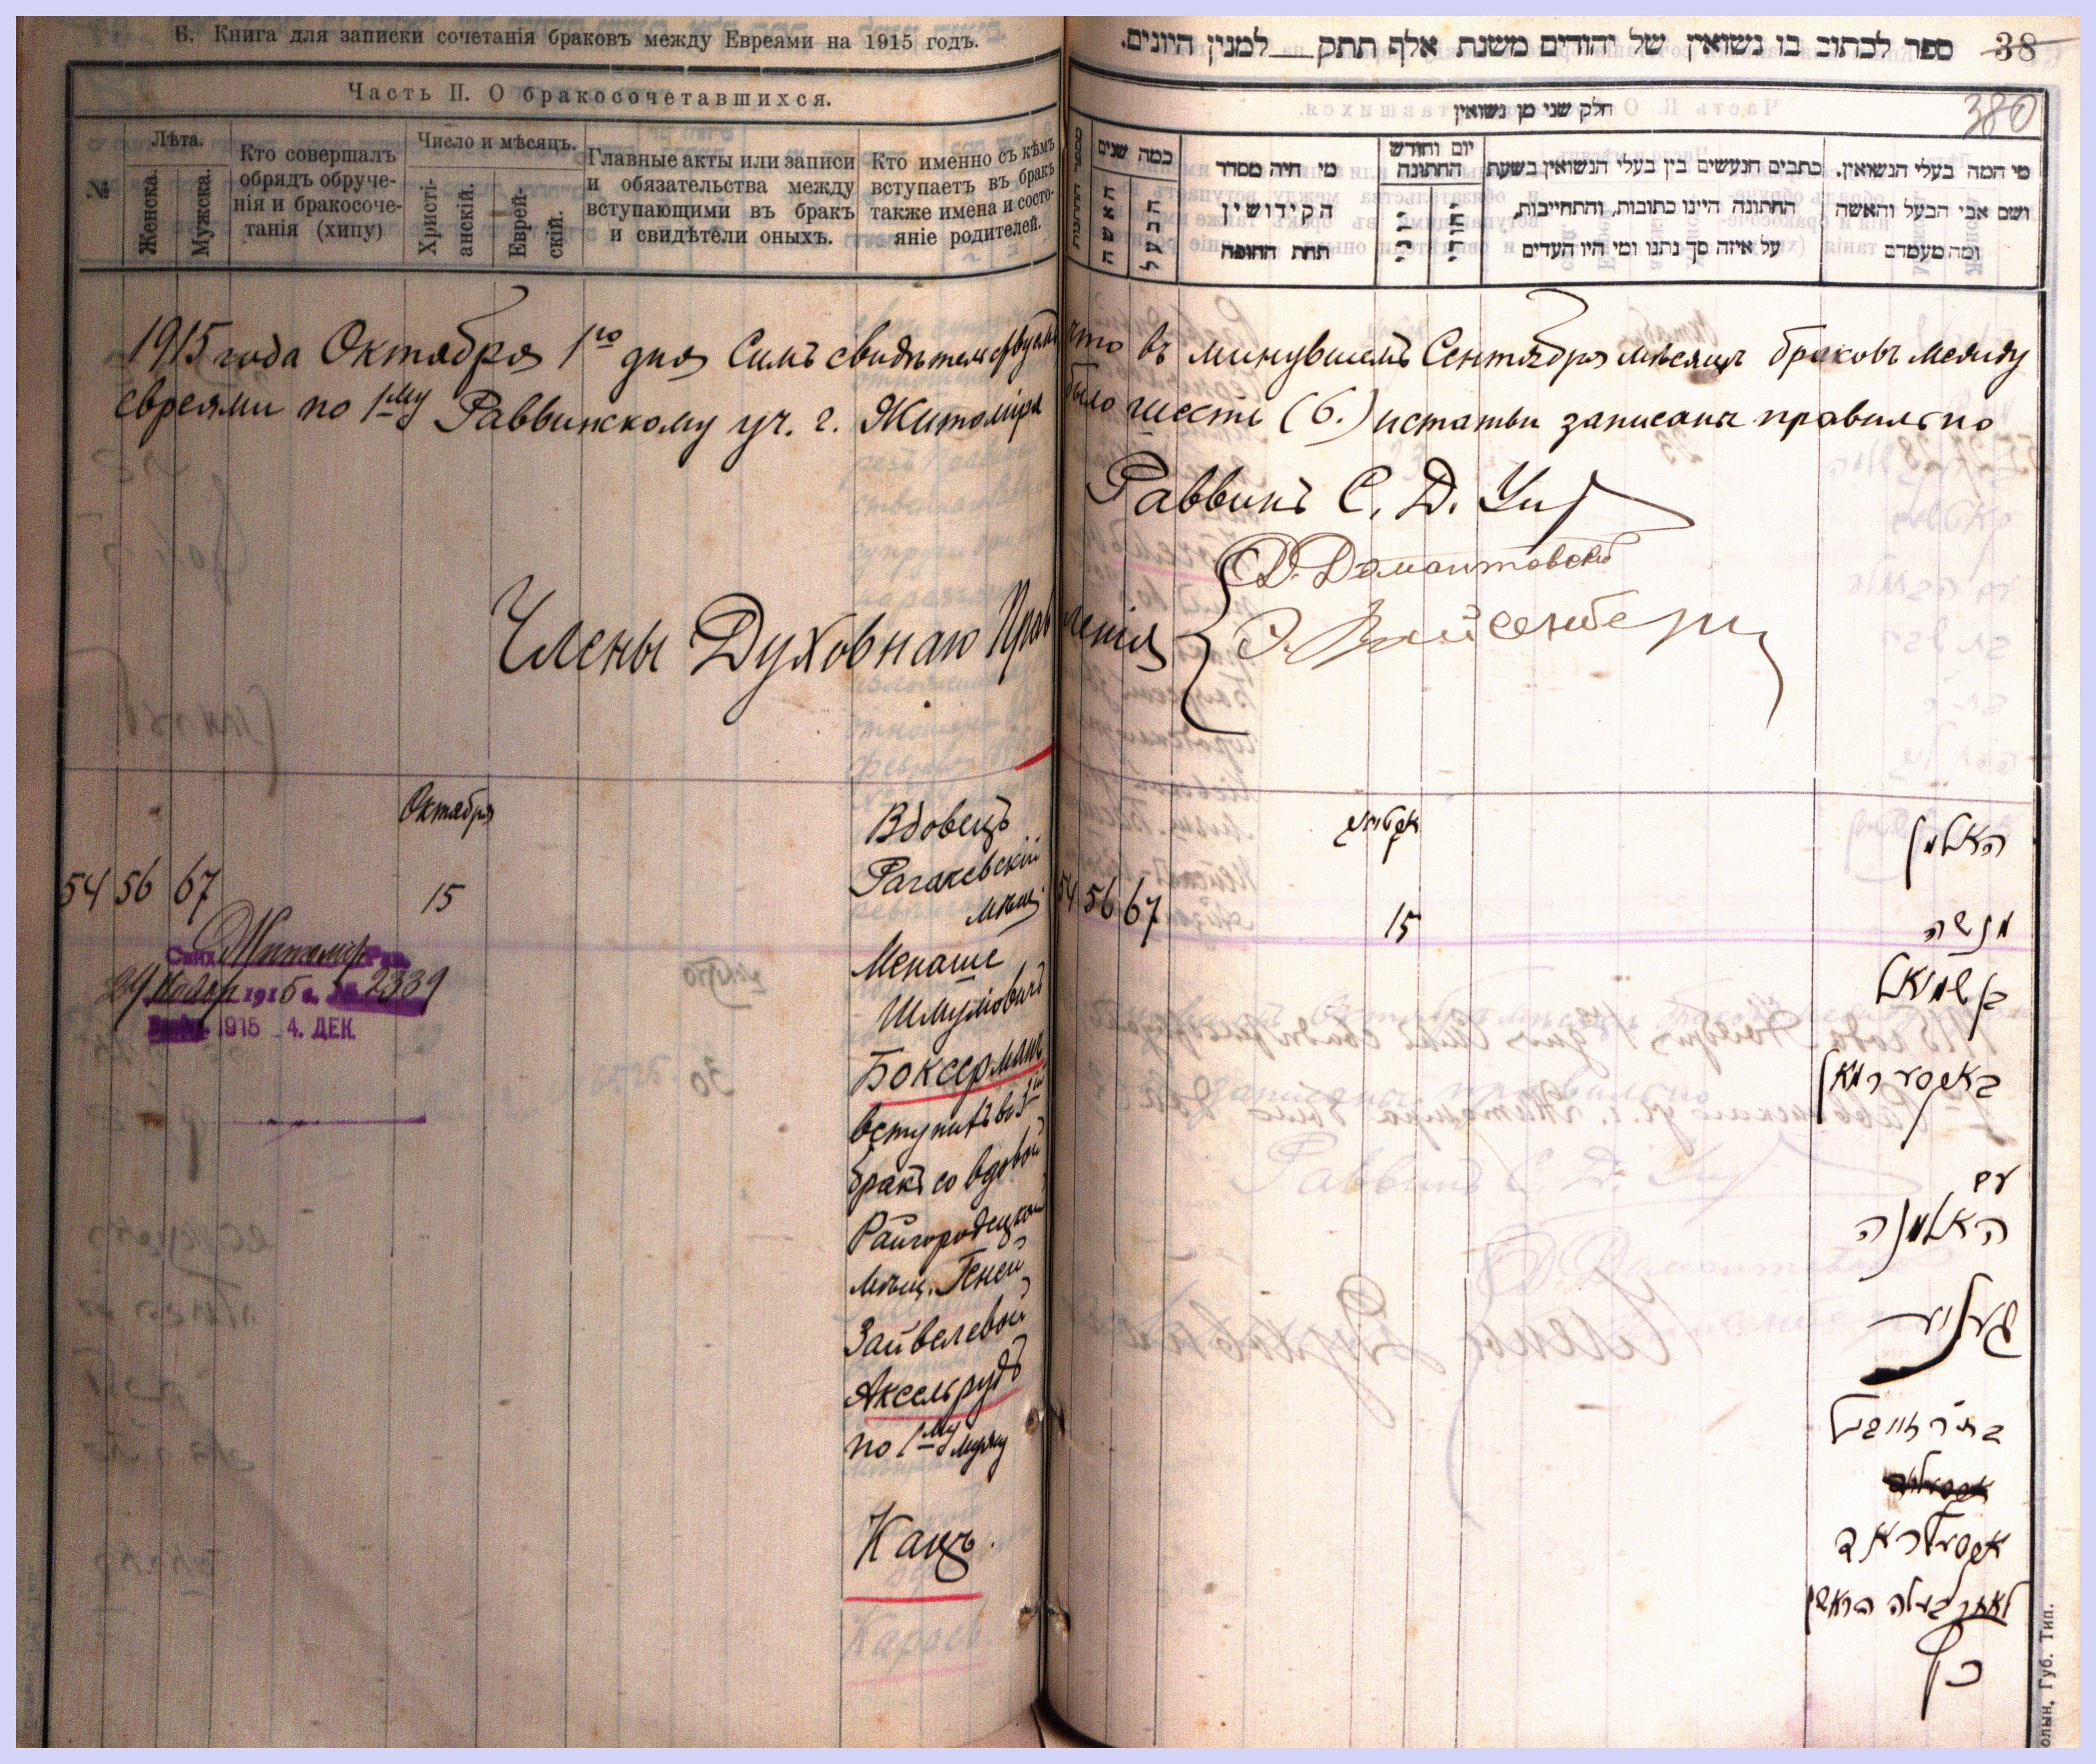 Б. Книга для записки сочетанія браковъ между Евреями на 1915 годъ.
Часть II. О бракосочетавшихся.
№
Лѣта.
Женска.
Мужска.
Кто совершалъ
обрядъ обруче-
нія и бракосоче-
танія (хипу)
Число и мѣсяцъ.
Христі-
анскій.
Еврей-
скій.
Главные акты или записи
и обязательства между
вступающими въ бракъ
и свидѣтели оныхъ.
Кто именно съ кѣмъ
вступаетъ въ бракъ
также имена и состо-
яніе родителей.
ספר לכתוב בו נשואין של יהודים משנת אלף תתק למנין היונים.
38
380
חלק שני מן נשואין
כמה שנים
האשה
הבעל
מי היה מסדר
הקידושין
תחת החופה
יום וחודש
החתונה
כתבים הנעשים בין בעלי הנשואין בשעת
החתונה היינו כתובות, והתחייבות,
על איזה סך נתנו ומי היו העדים
מי המה בעלי הנשואין.
ושם אבי הבעל והאשה
ומה מעמדם
1915 года Октября 1го дня Симъ свидѣтельствуемъ что въ минувшемъ Сентябрѣ мѣсяцѣ браковъ между
евреями по 1му Раввинскому уч. г. Житоміра было шесть (6.) и статьи записаны правильно
Раввинъ С. Д.
Члены Духовнаго Правленія
Д. Домонтовскій
Вайсенберг
54 56 67
Октября
15
Вдовецъ
Рагачевскій
мѣщ.
Менаше
Шмулiовичъ
Боксерманъ
вступилъ въ 3й
бракъ со вдовой
Райгородецкой
мѣщ. Геней
Зайвелевой
Аксельрудъ
по 1му мужу
Кацъ.
Житомір Рав.
24 Ноябр 1915 г. № 2339
1915 4. ДЕК.
54 56 67
15
האלמן
מנשה
בן שמואל
באקסערמאן
עם
האלמנה
געניע
בת ר' זייוויל
אקסעלראד
לאחר בעלה הראשון
כץ
Волын. Губ. Тип.